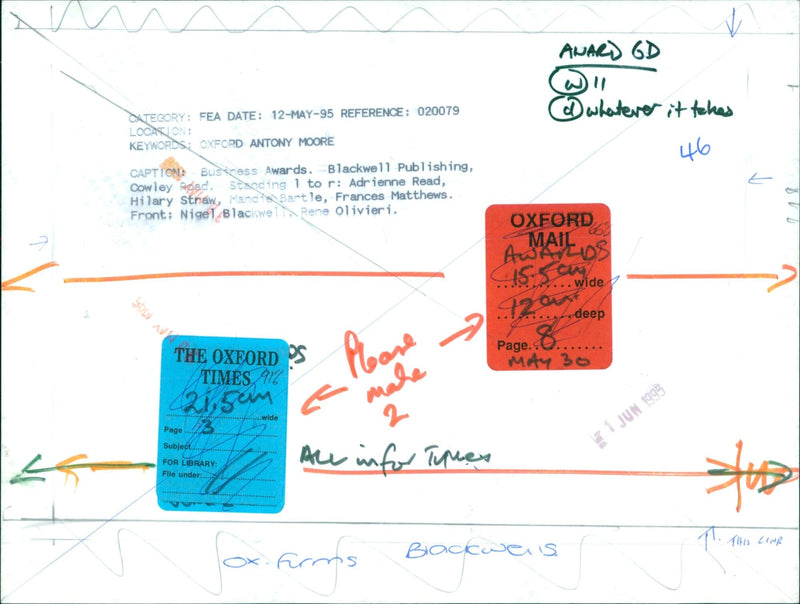 AWARD GD
w 11
d whatever it takes
46
CATEGORY: FEA DATE: 12-MAY-95 REFERENCE: 020079
LOCATION:
KEYWORDS: OXFORD ANTONY MOORE
CAPTION: Business Awards. Blackwell Publishing,
Cowley Road. Standing l to r: Adrienne Read,
Hilary Straw, Mancie Bartle, Frances Matthews.
Front: Nigel Blackwell. Rene Olivieri.
OXFORD
MAIL
AWARDS
15.5cm wide
12cm deep
Page 8
MAY 30
Please
make
2
THE OXFORD
TIMES
21.5cm wide
Page 3
Subject
FOR LIBRARY:
File under:
1 JUN 1995
ALL infor Times
THIS LINE
OX. Firms Blackwells